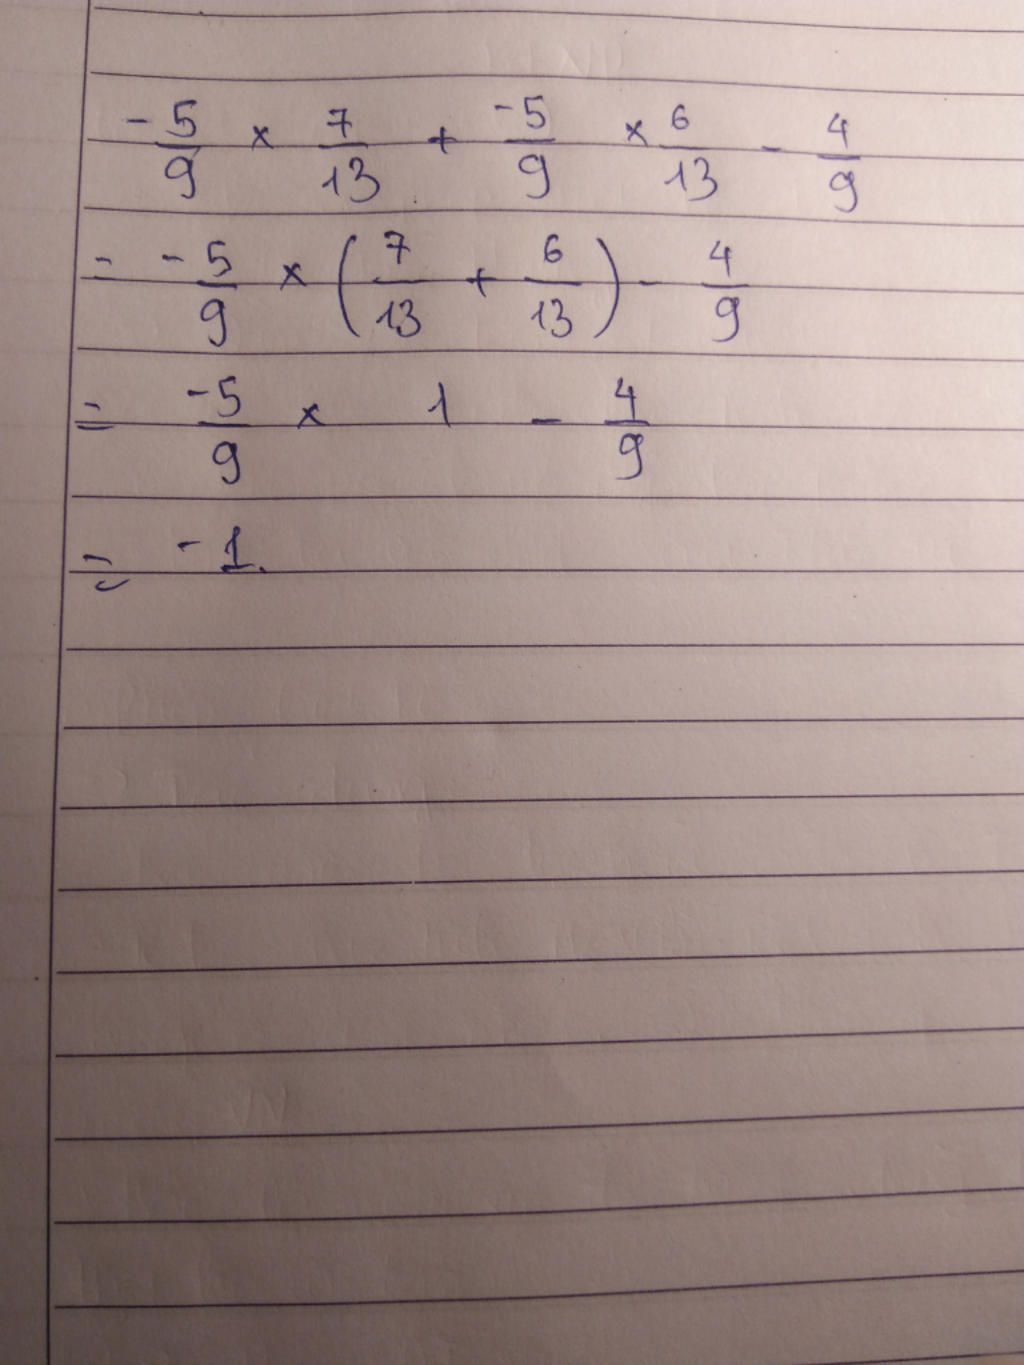 -5/9 × 7/13 + -5/9 × 6/13 - 4/9
= -5/9 × (7/13 + 6/13) - 4/9
= -5/9 × 1 - 4/9
= -1.